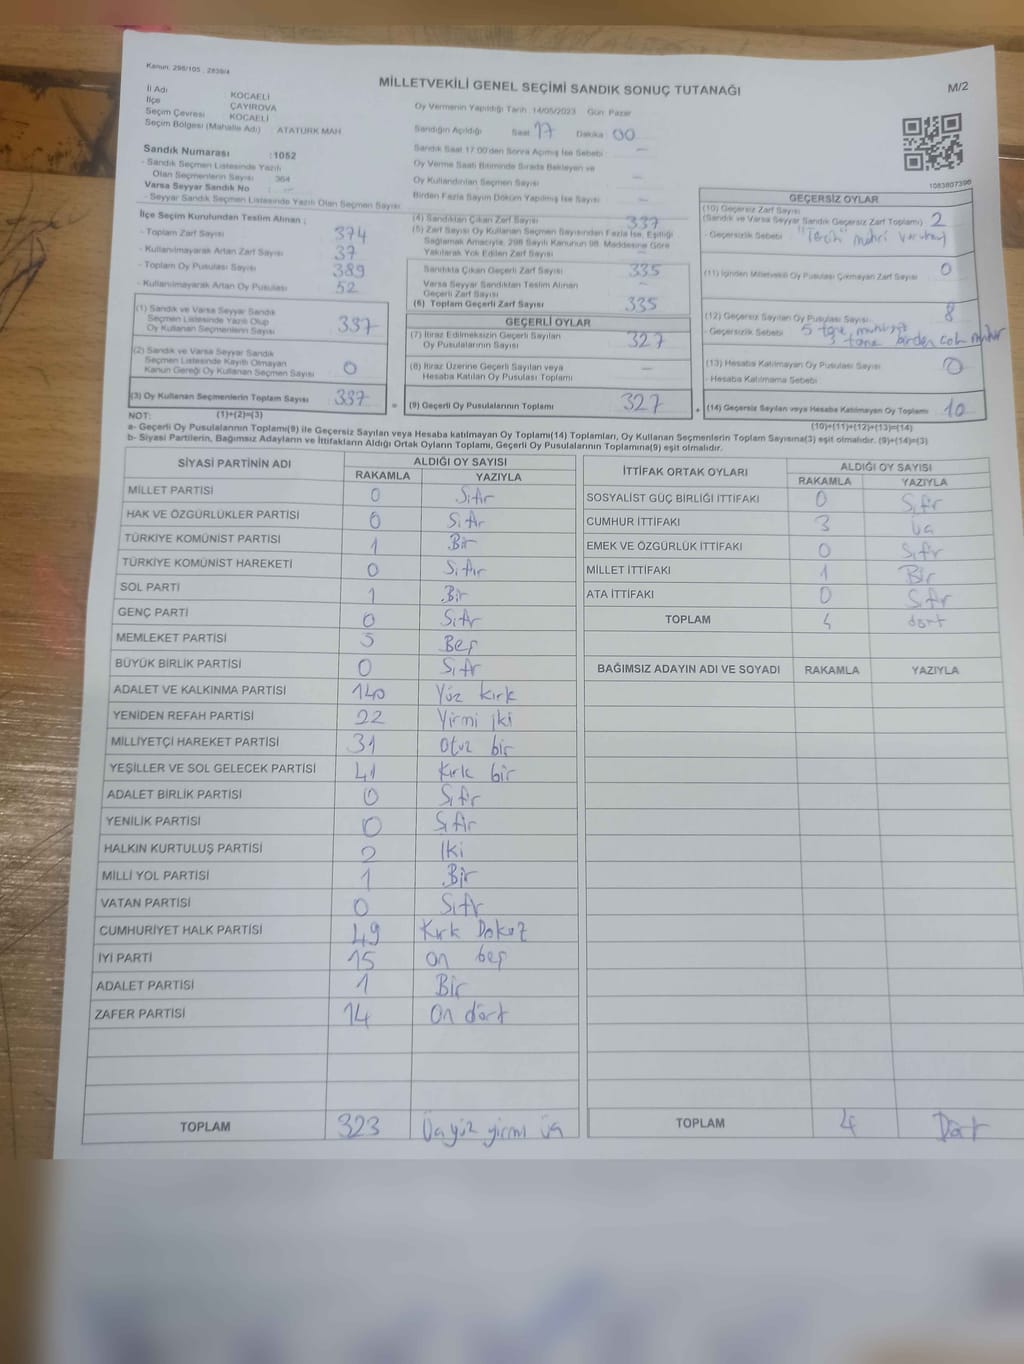 Kanun: 298/105 , 2839/4
MİLLETVEKİLİ GENEL SEÇİMİ SANDIK SONUÇ TUTANAĞI
M/2
İl Adı KOCAELİ
İlçe ÇAYIROVA
Seçim Çevresi KOCAELİ
Seçim Bölgesi (Mahalle Adı) ATATÜRK MAH
Sandık Numarası :1052
- Sandık Seçmen Listesinde Yazılı
Olan Seçmenlerin Sayısı 364
Varsa Seyyar Sandık No : -
- Seyyar Sandık Seçmen Listesinde Yazılı Olan Seçmen Sayısı
Oy Vermenin Yapıldığı Tarih 14/05/2023 Gün Pazar
Sandığın Açıldığı Saat 17 Dakika 00
Sandık Saat 17:00'den Sonra Açmış İse Sebebi —
Oy Verme Saati Bitiminde Sırada Bekleyen ve
Oy Kullandırılan Seçmen Sayısı —
Birden Fazla Sayım Döküm Yapılmış İse Sayısı —
1083807390
İlçe Seçim Kurulundan Teslim Alınan ;
- Toplam Zarf Sayısı 374
- Kullanılmayarak Artan Zarf Sayısı 37
- Toplam Oy Pusulası Sayısı 389
- Kullanılmayarak Artan Oy Pusulası 52
(1) Sandık ve Varsa Seyyar Sandık
Seçmen Listesinde Yazılı Olup
Oy Kullanan Seçmenlerin Sayısı 337
(2) Sandık ve Varsa Seyyar Sandık
Seçmen Listesinde Kayıtlı Olmayan
Kanun Gereği Oy Kullanan Seçmen Sayısı 0
(3) Oy Kullanan Seçmenlerin Toplam Sayısı 337
(4) Sandıktan Çıkan Zarf Sayısı 337
(5) Zarf Sayısı Oy Kullanan Seçmen Sayısından Fazla İse, Eşitliği
Sağlamak Amacıyla, 298 Sayılı Kanunun 98. Maddesine Göre
Yakılarak Yok Edilen Zarf Sayısı —
Sandıkta Çıkan Geçerli Zarf Sayısı 335
Varsa Seyyar Sandıktan Teslim Alınan
Geçerli Zarf Sayısı —
(6) Toplam Geçerli Zarf Sayısı 335
GEÇERLİ OYLAR
(7) İtiraz Edilmeksizin Geçerli Sayılan
Oy Pusulalarının Sayısı 327
(8) İtiraz Üzerine Geçerli Sayılan veya
Hesaba Katılan Oy Pusulası Toplamı —
= (9) Geçerli Oy Pusulalarının Toplamı 327
GEÇERSİZ OYLAR
(10) Geçersiz Zarf Sayısı
(Sandık ve Varsa Seyyar Sandık Geçersiz Zarf Toplamı) 2
- Geçersizlik Sebebi "Tercih" mühri
(11) İçinden Milletvekili Oy Pusulası Çıkmayan Zarf Sayısı 0
(12) Geçersiz Sayılan Oy Pusulası Sayısı 8
- Geçersizlik Sebebi 5 tane
3 tane birden çok mühür
(13) Hesaba Katılmayan Oy Pusulası Sayısı 0
- Hesaba Katılmama Sebebi
+ (14) Geçersiz Sayılan veya Hesaba Katılmayan Oy Toplamı 10
NOT: (1)+(2)=(3) (10)+(11)+(12)+(13)=(14)
a- Geçerli Oy Pusulalarının Toplamı(9) ile Geçersiz Sayılan veya Hesaba katılmayan Oy Toplamı(14) Toplamları, Oy Kullanan Seçmenlerin Toplam Sayısına(3) eşit olmalıdır. (9)+(14)=(3)
b- Siyasi Partilerin, Bağımsız Adayların ve İttifakların Aldığı Ortak Oyların Toplamı, Geçerli Oy Pusulalarının Toplamına(9) eşit olmalıdır.
SİYASİ PARTİNİN ADI ALDIĞI OY SAYISI
RAKAMLA YAZIYLA
MİLLET PARTİSİ 0 Sıfır
HAK VE ÖZGÜRLÜKLER PARTİSİ 0 Sıfır
TÜRKİYE KOMÜNİST PARTİSİ 1 Bir
TÜRKİYE KOMÜNİST HAREKETİ 0 Sıfır
SOL PARTİ 1 Bir
GENÇ PARTİ 0 Sıfır
MEMLEKET PARTİSİ 5 Beş
BÜYÜK BİRLİK PARTİSİ 0 Sıfır
ADALET VE KALKINMA PARTİSİ 140 Yüz kırk
YENİDEN REFAH PARTİSİ 22 Yirmi iki
MİLLİYETÇİ HAREKET PARTİSİ 31 Otuz bir
YEŞİLLER VE SOL GELECEK PARTİSİ 41 Kırk bir
ADALET BİRLİK PARTİSİ 0 Sıfır
YENİLİK PARTİSİ 0 Sıfır
HALKIN KURTULUŞ PARTİSİ 2 İki
MİLLİ YOL PARTİSİ 1 Bir
VATAN PARTİSİ 0 Sıfır
CUMHURİYET HALK PARTİSİ 49 Kırk Dokuz
İYİ PARTİ 15 On beş
ADALET PARTİSİ 1 Bir
ZAFER PARTİSİ 14 On dört
TOPLAM 323 Üçyüz yirmi üç
İTTİFAK ORTAK OYLARI ALDIĞI OY SAYISI
RAKAMLA YAZIYLA
SOSYALİST GÜÇ BİRLİĞİ İTTİFAKI 0 Sıfır
CUMHUR İTTİFAKI 3 Üç
EMEK VE ÖZGÜRLÜK İTTİFAKI 0 Sıfır
MİLLET İTTİFAKI 1 Bir
ATA İTTİFAKI 0 Sıfır
TOPLAM 4 dört
BAĞIMSIZ ADAYIN ADI VE SOYADI RAKAMLA YAZIYLA
TOPLAM 4 Dört